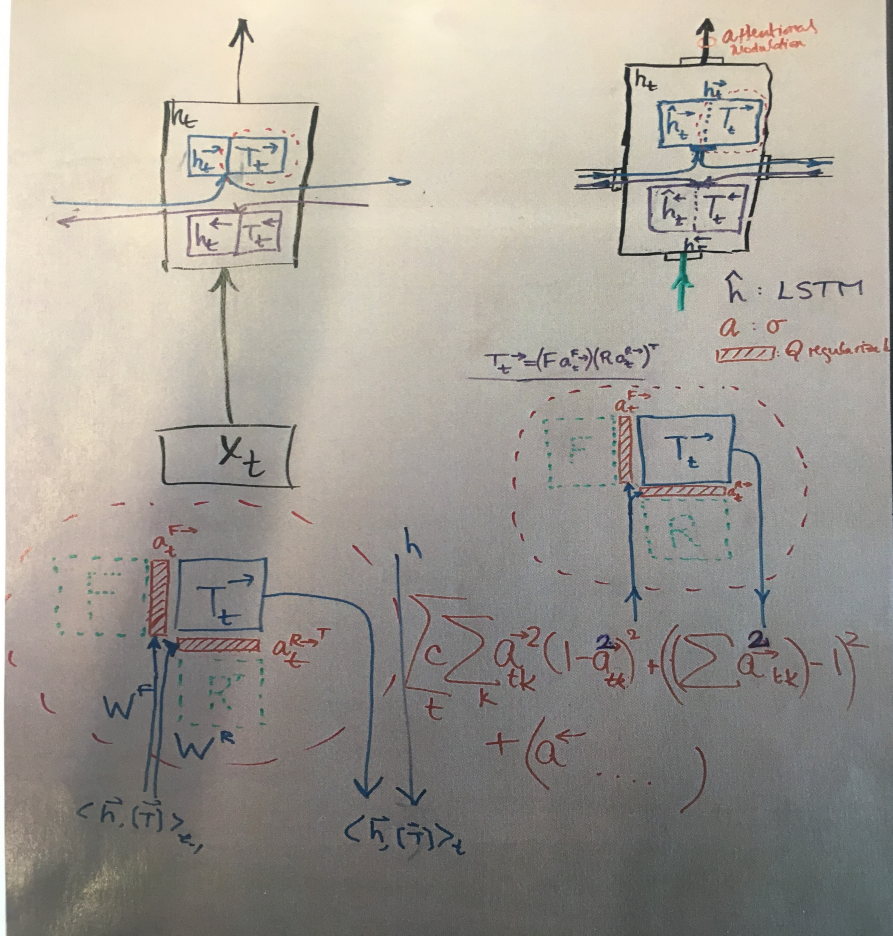 h_t
h_t^→ T_t^→
h_t^← T_t^←
X_t
attentional
Modulation
h_t
h_t^→
ĥ_t^→ T_t^→
ĥ_t^← T_t^←
h_t^←
ĥ : LSTM
a : σ
: Q regularized
T_t^→ = (F a_t^{F→})(R a_t^{R→})^T
a_t^{F→}
F T_t^→
a_t^{R→}
R
a_t^{F→}
h
F T_t^→
a_t^{R→T}
R
W^F
W^R
<h⃗, (T⃗)>_{t-1}
<h⃗, (T⃗)>_t
∑_t c ∑_k a⃗_{tk}^2 (1 - a⃗_{tk}^2)^2 + ((∑ a⃗_{tk}^2) - 1)^2
+ (a^← ..... )